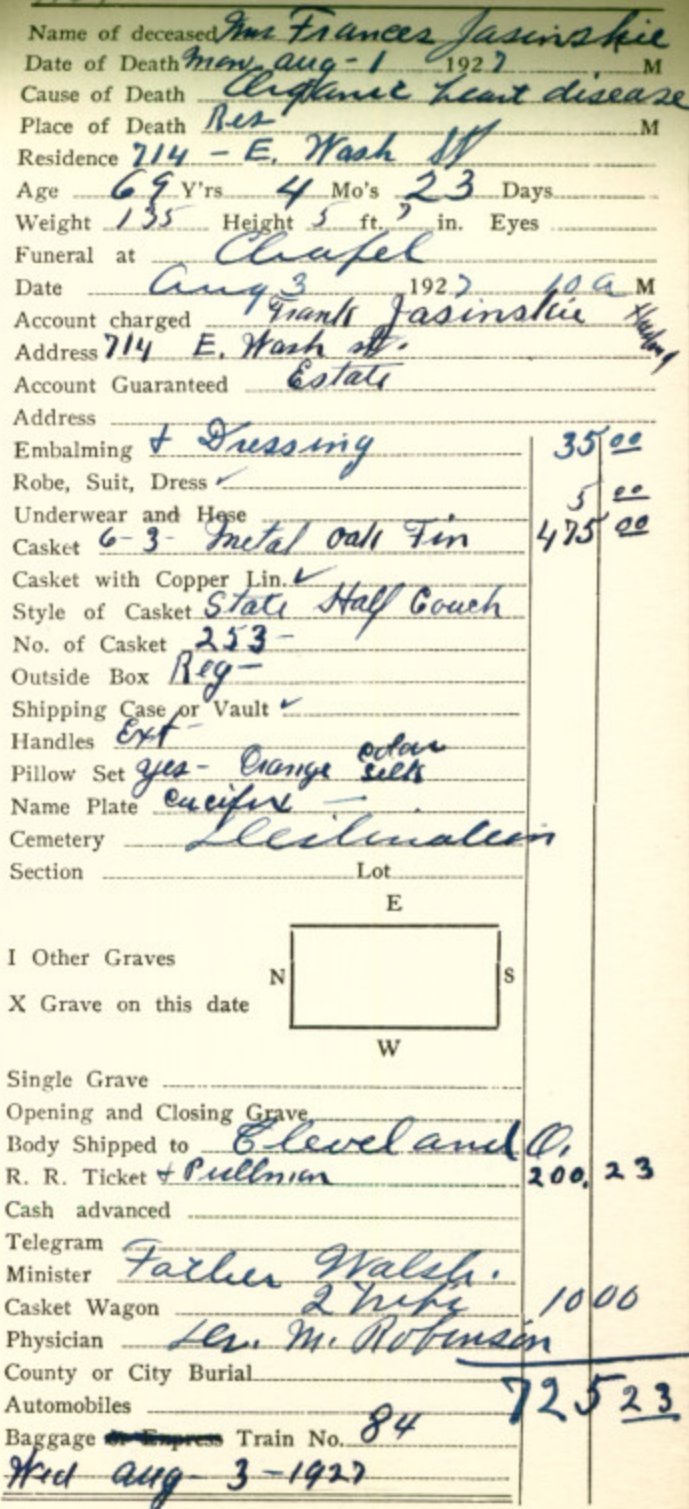 Name of deceased Mrs Frances Jasinskie
Date of Death Mon, Aug - 1 1927 M
Cause of Death Organic heart disease
Place of Death Res M
Residence 714 - E. Wash St
Age 69 Y'rs 4 Mo's 23 Days
Weight 135 Height 5 ft. 7 in. Eyes
Funeral at Chapel
Date Aug 3 1927 10 a M
Account charged Frank Jasinskie
Address 714 E. Wash St.
Account Guaranteed Estate
Address
Embalming + Dressing 35 00
Robe, Suit, Dress ✓
Underwear and Hose 5 00
Casket 6-3- Metal Oak Fin 475 00
Casket with Copper Lin. ✓
Style of Casket State Half Couch
No. of Casket 253 -
Outside Box Reg -
Shipping Case or Vault ✓
Handles Ext -
Pillow Set yes - Orange color silk
Name Plate Crucifix -
Cemetery
Section Lot
E
I Other Graves
N S
X Grave on this date
W
Single Grave
Opening and Closing Grave
Body Shipped to Cleveland O.
R. R. Ticket + Pullman 200. 23
Cash advanced
Telegram
Minister Father Walsh.
Casket Wagon 2 10 00
Physician Dr. M. Robinson
County or City Burial
725 23
Automobiles
Baggage or Express Train No. 84
Wed Aug - 3 - 1927